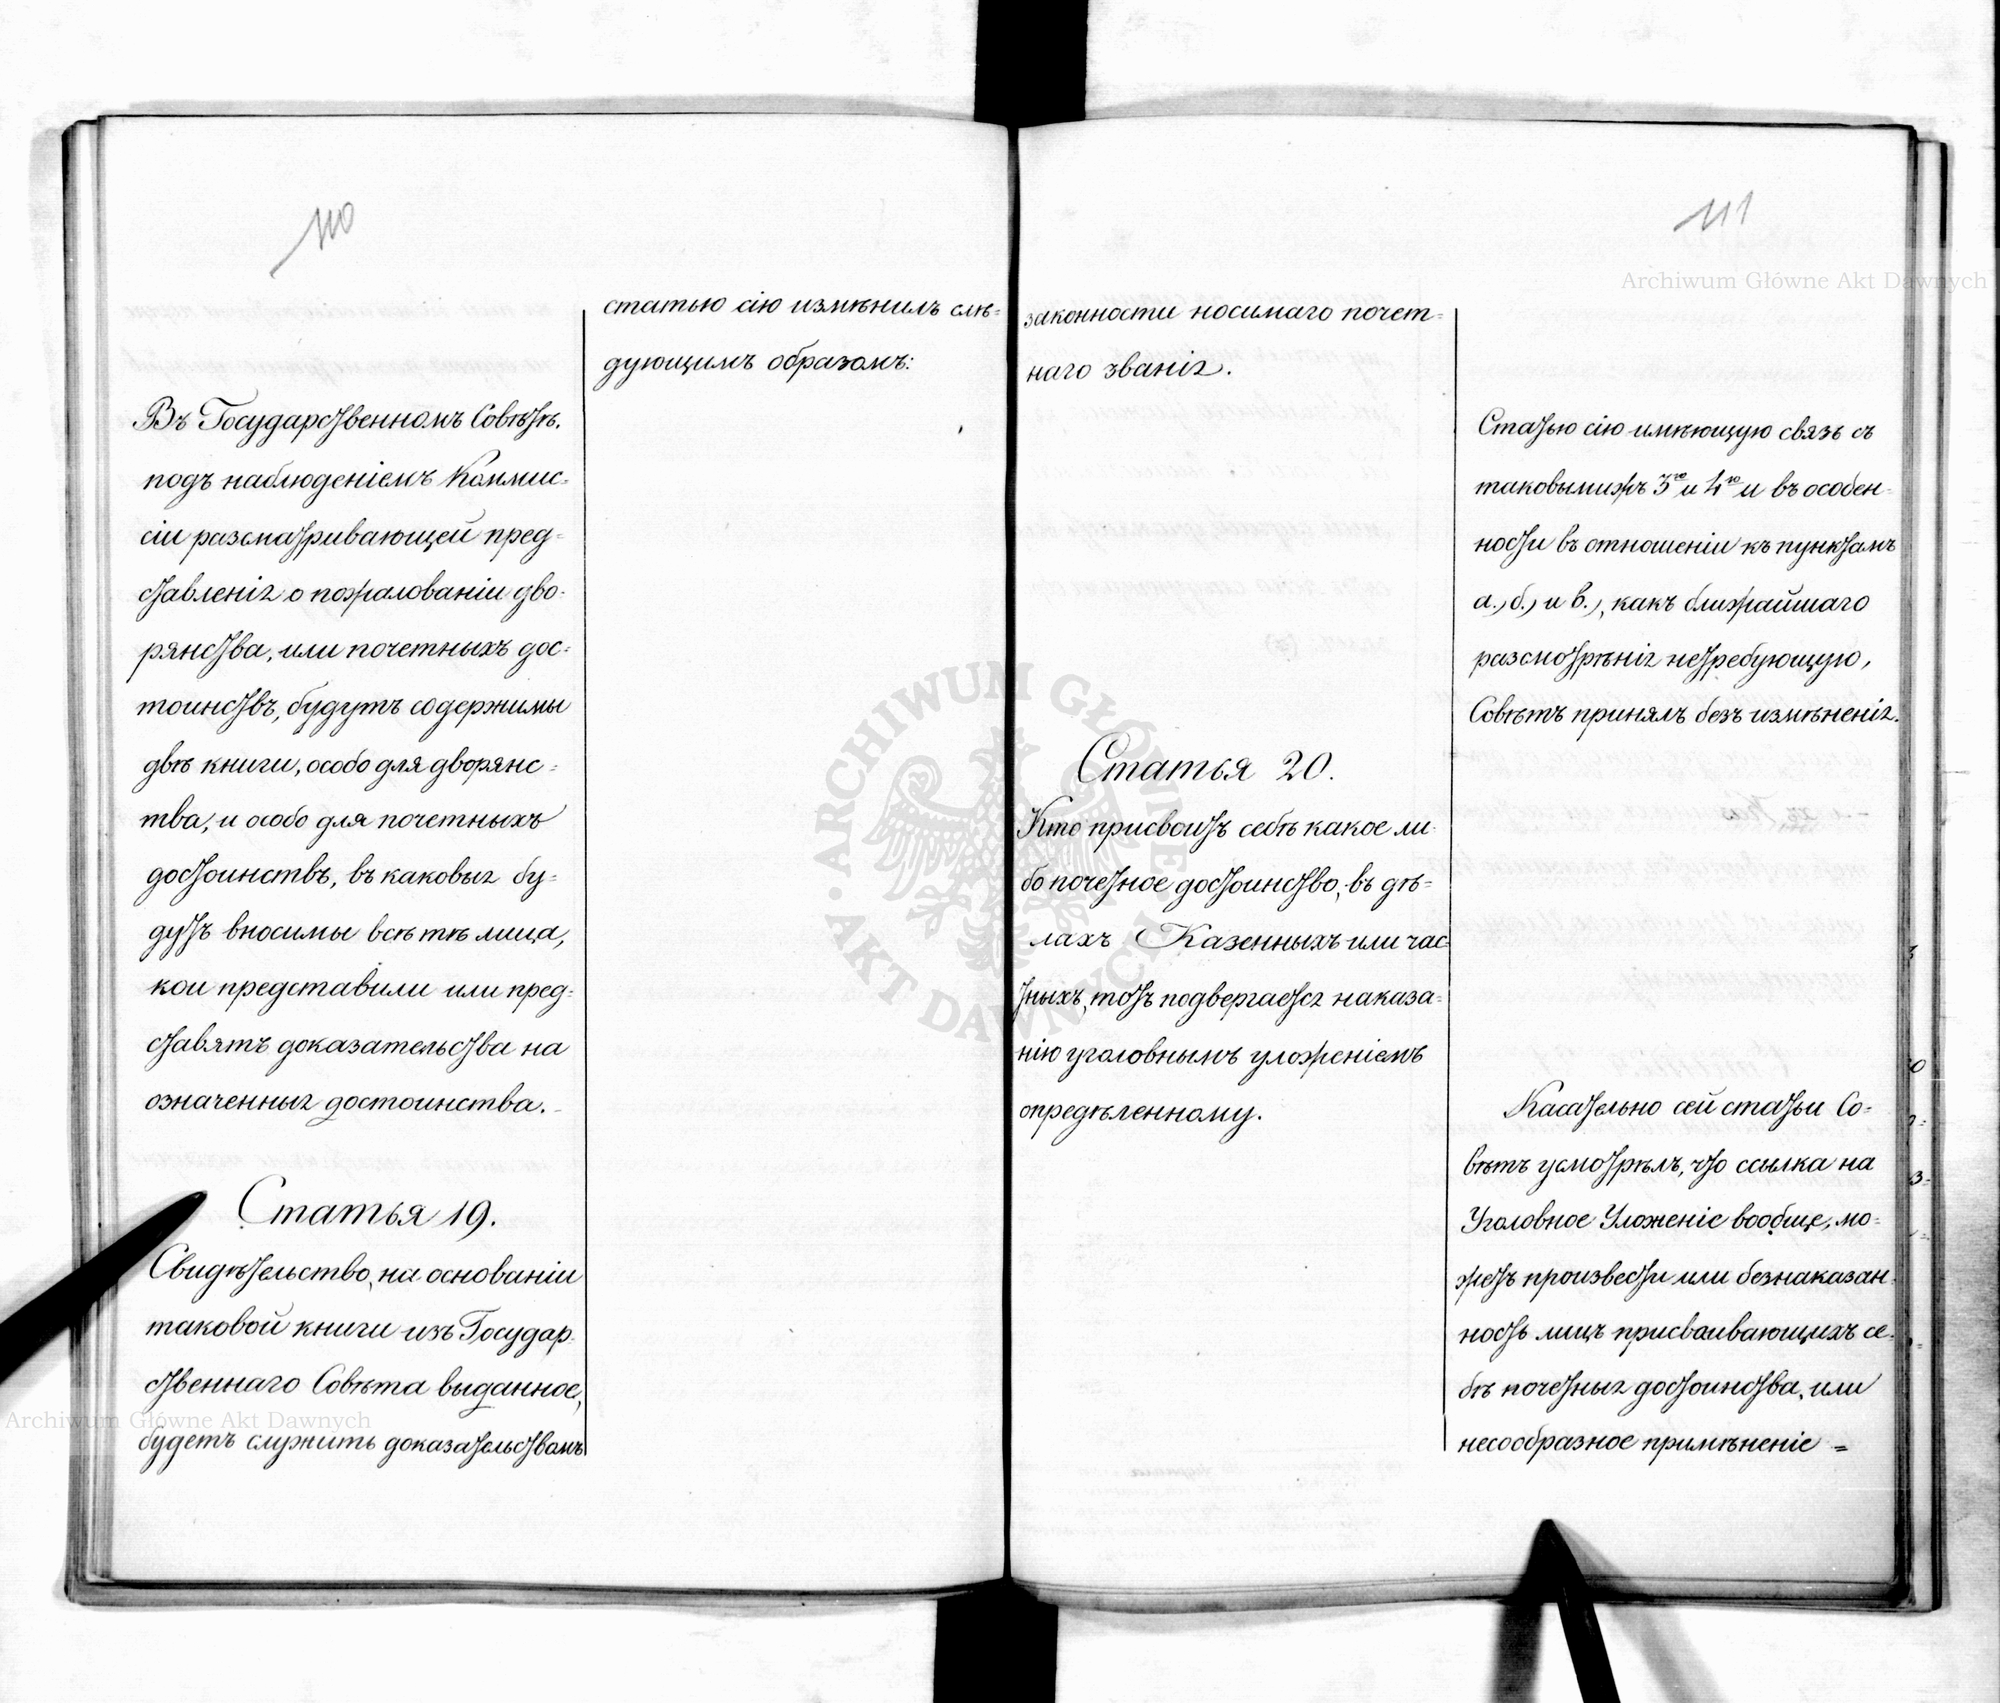 110
статью сію измѣнилъ слѣ=
дующимъ образомъ:
Въ Государственномъ Совѣтѣ,
подъ наблюденіемъ Коммис=
сіи разсматривающей пред=
ставленія о пожалованіи дво=
рянства, или почетныхъ дос=
тоинствъ, будутъ содержимы
двѣ книги, особо для дворянс=
тва, и особо для почетныхъ
достоинствъ, въ каковыя бу=
дутъ вносимы всѣ тѣ лица,
кои представили или пред=
ставятъ доказательства на
означенныя достоинства.
Статья 19.
Свидѣтельство, на основаніи
таковой книги изъ Государ=
ственнаго Совѣта выданное,
будетъ служить доказательствомъ
111
законности носимаго почет=
наго званія.
Статья 20.
Кто присвоитъ себѣ какое ли=
бо почетное достоинство, въ дѣ=
лахъ Казенныхъ или час=
тныхъ, тотъ подвергается наказа=
нію уголовнымъ уложеніемъ
опредѣленному.
Статью сію имѣющую связь съ
таковымижъ 3ю и 4ю и въ особен=
ности въ отношеніи къ пунктамъ
а.) б.) и в.), какъ ближайшаго
разсмотрѣнія нетребующую,
Совѣтъ принялъ безъ измѣненія.
Касательно сей статьи Со=
вѣтъ усмотрѣлъ, что ссылка на
Уголовное Уложеніе вообще, мо=
жетъ произвести или безнаказан=
ность лицъ присваивающихъ се=
бѣ почетныя достоинства, или
несообразное примѣненіе =
Archiwum Główne Akt Dawnych
Archiwum Główne Akt Dawnych
ARCHIWUM GŁÓWNE AKT DAWNYCH